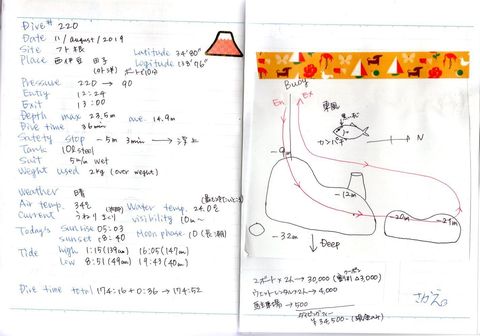 Dive # 220
Date 11/august/2019
Site フト根 Latitude 34°80"
Place 西伊豆 田子 Logitude 138°76"
(外洋) ボートで10分
Pressure 220 → 90
Entry 12:24
Exit 13:00
Depth max 23.5m ave. 14.9m
Dive time 36min
Safety stop -5m 3min → 浮上
Tank 10L steel
Suit 5m/m wet
Weight used 2kg (over weight)
Weather 晴
Air temp. 34℃ Water temp. 24.0℃
Current うねり visibility 10m~
Today's sunrise 05:03
sunset 18:40 Moon phase: 10 (長潮)
Tide high 1:15 (139cm) 16:05 (147cm)
low 8:51 (49cm) 19:43 (40cm)
Dive time total 174:16 + 0:36 → 174:52
Buoy
En
Ex
東風
カンパチ
N
-9m
-12m
-20m
-21m
-32m
Deep
クーポン
2ボート×2人 → 30,000 (割引 43,000)
ウエットレンタル×2人 → 4,000
駐車場 → 500
ダイビングフィー
¥34,500-
さかえ